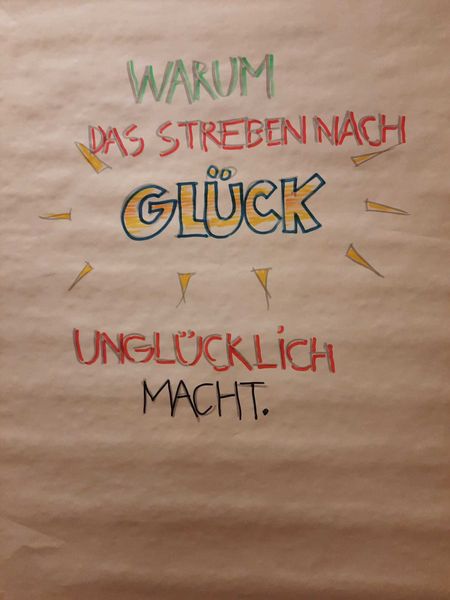 WARUM
DAS STREBEN NACH
GLÜCK
UNGLÜCKLICH
MACHT.